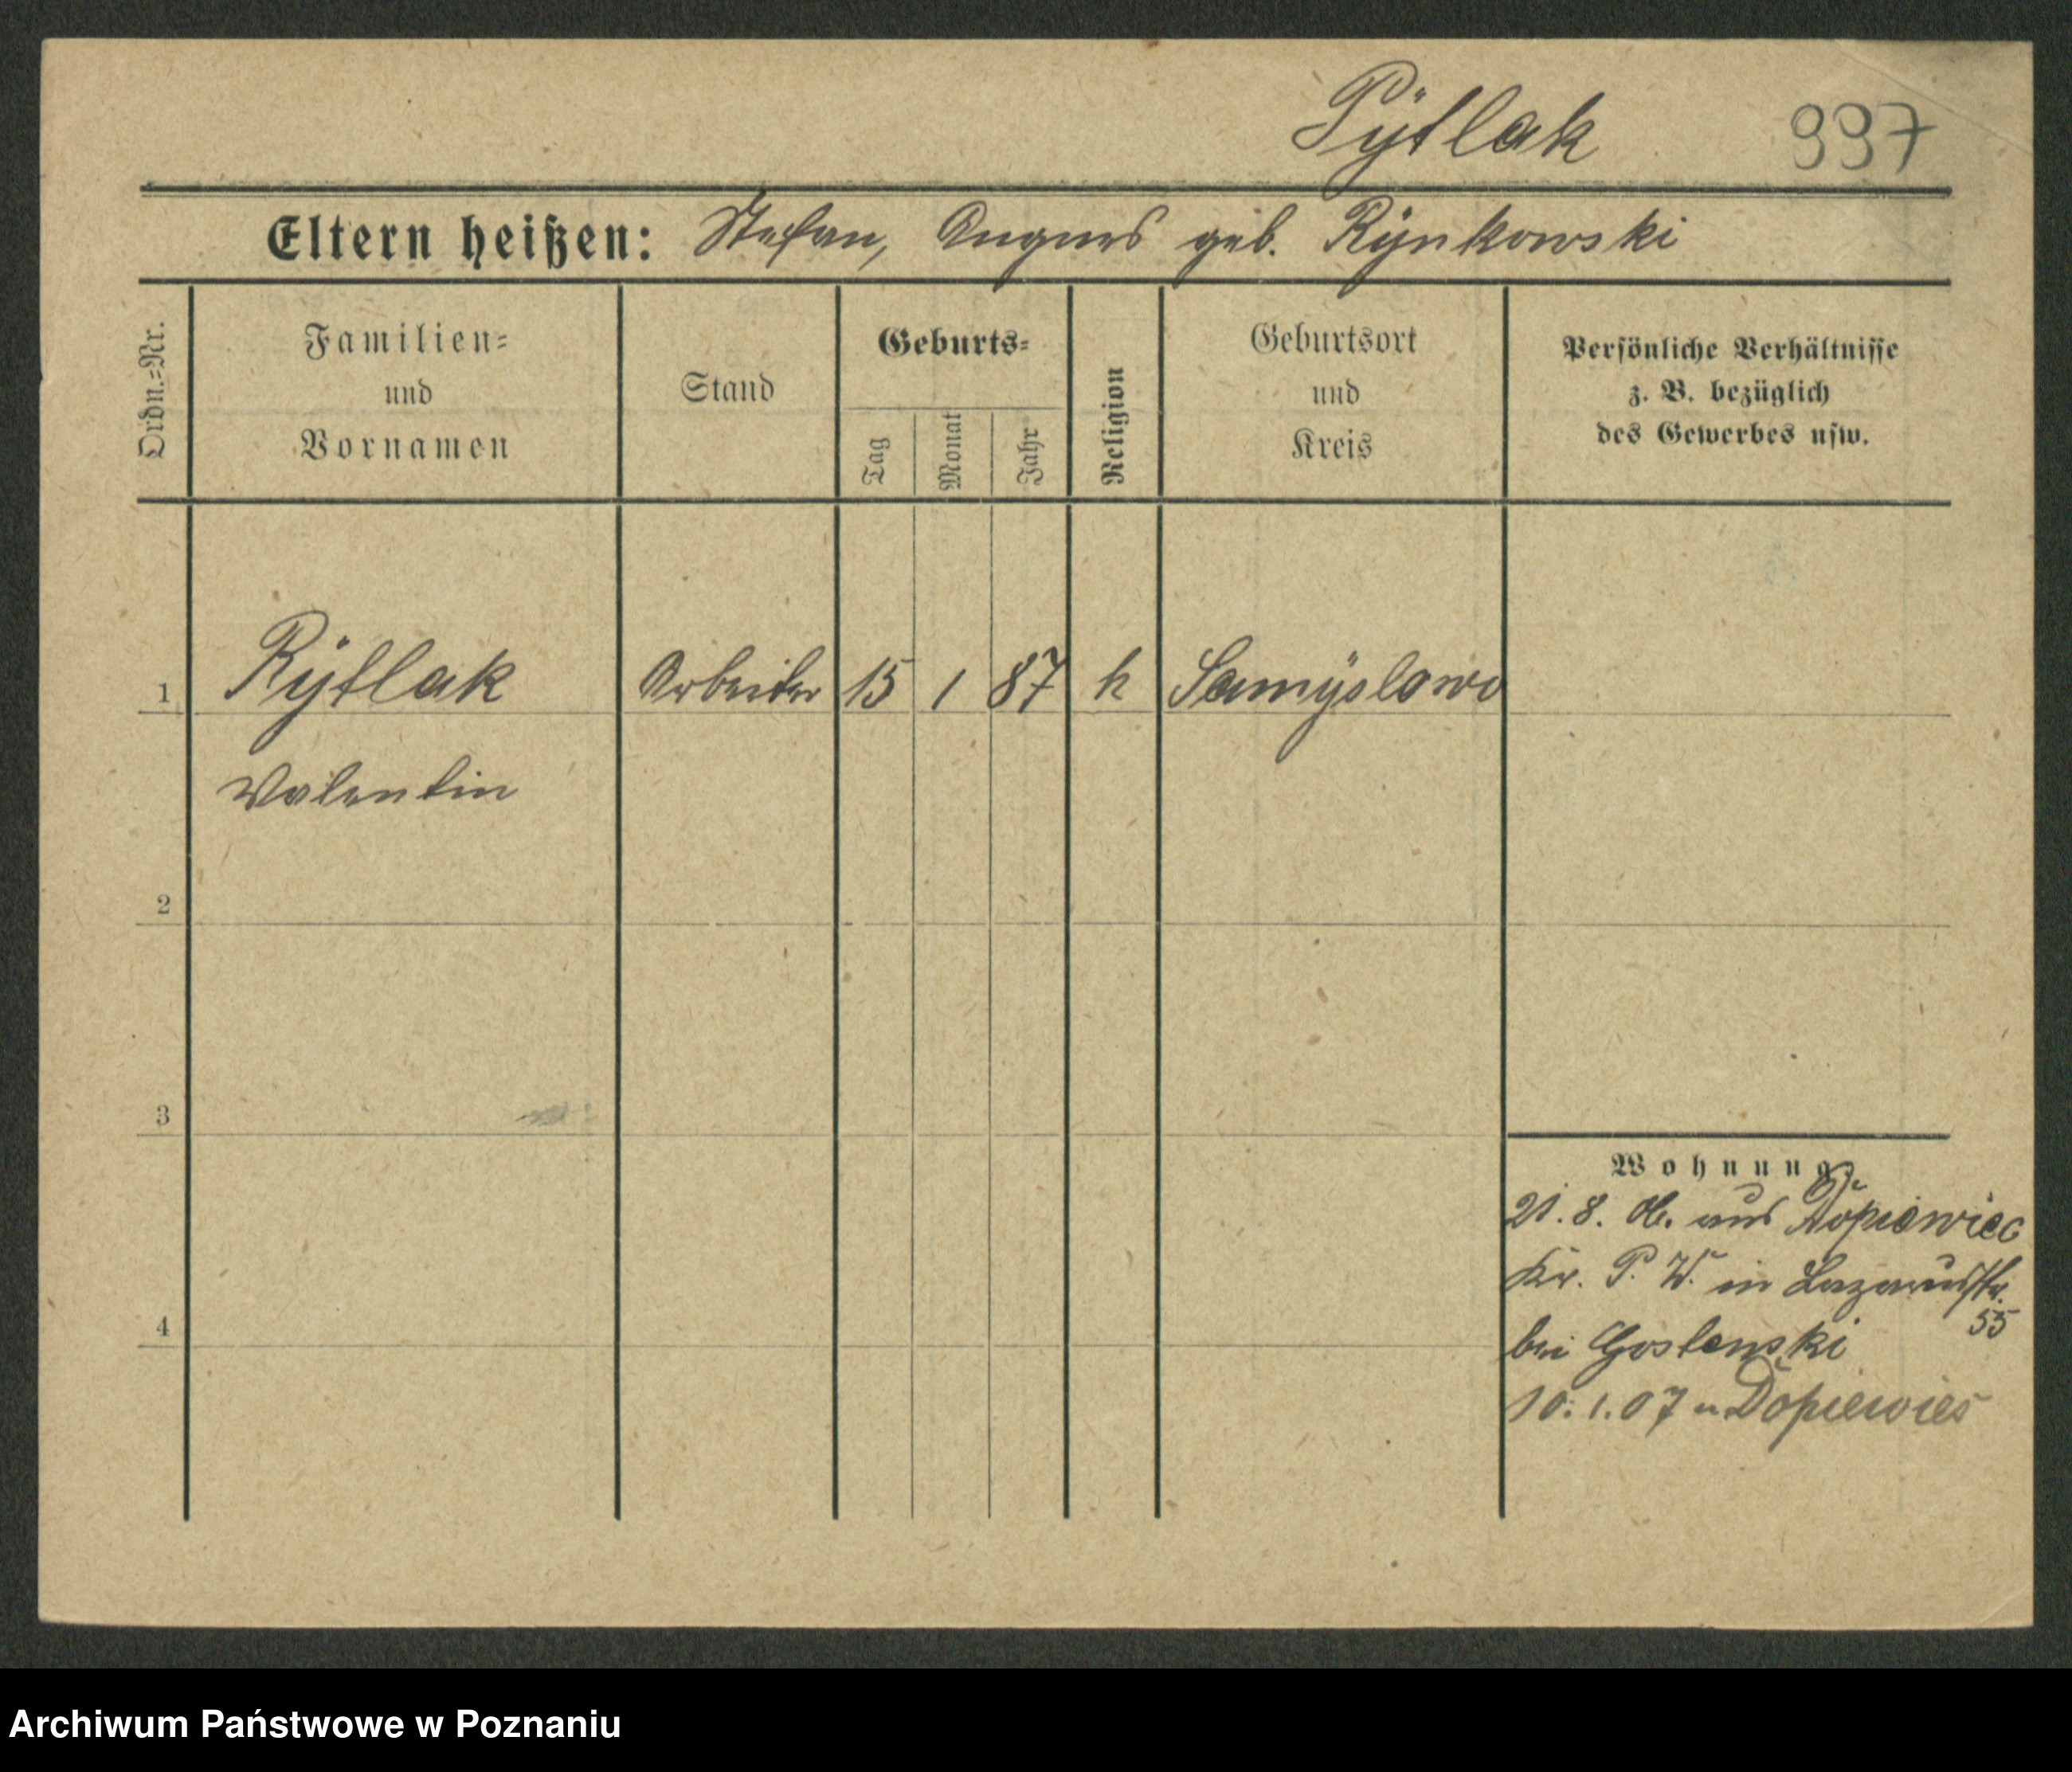 Pÿtlak 997
Eltern heißen: Stefan, Agnes geb. Rÿnkowski
Ordn.=Nr.
Familien=
und
Vornamen
Stand
Geburts=
Tag
Monat
Jahr
Religion
Geburtsort
und
Kreis
Persönliche Verhältnisse
z. B. bezüglich
des Gewerbes usw.
1 Pÿtlak Arbeiter 15 1 87 k Samÿslowo
Valentin
2
3
4
Wohnung
21. 8. 06. aus Dopiewiec
Kr. P. W. in Lazarusstr.
55
bei Goslenski
10.1.07 n. Dopiewies
Archiwum Państwowe w Poznaniu